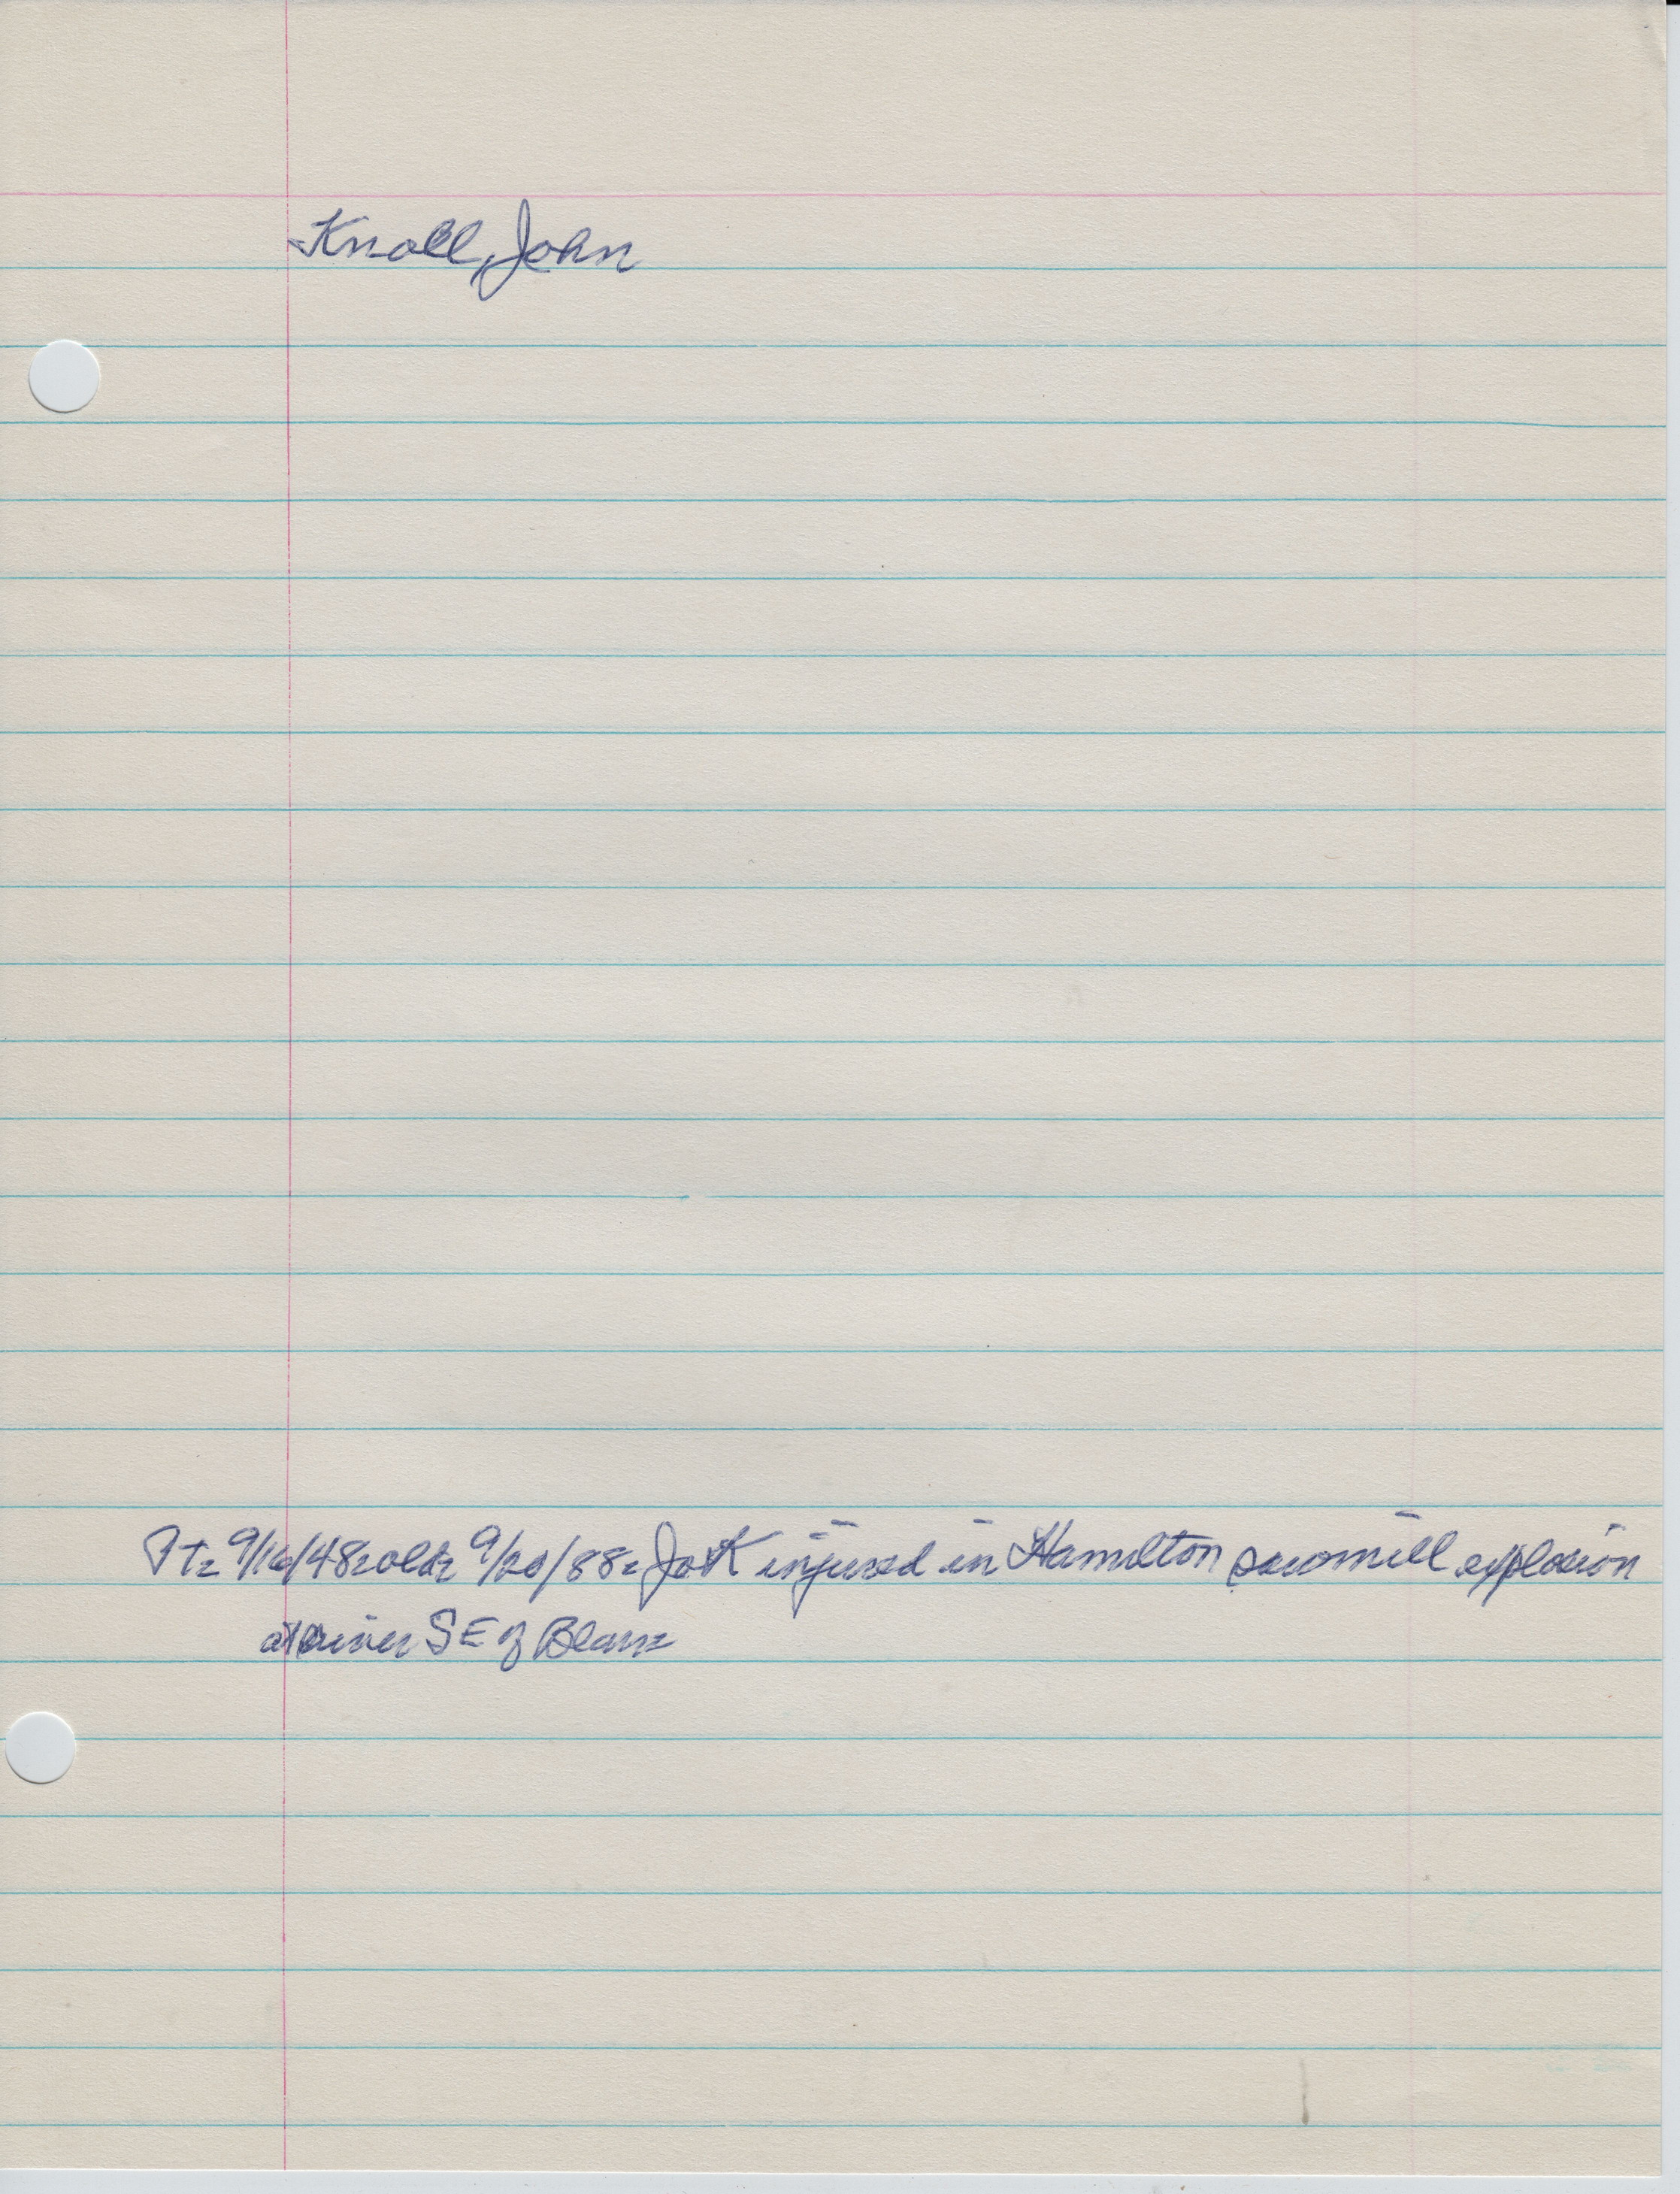 Knoll, John
Ttz 9/16/48zoldz 9/20/88z Jo K injured in Hamilton sawmill explosion
at river SE of Blanz